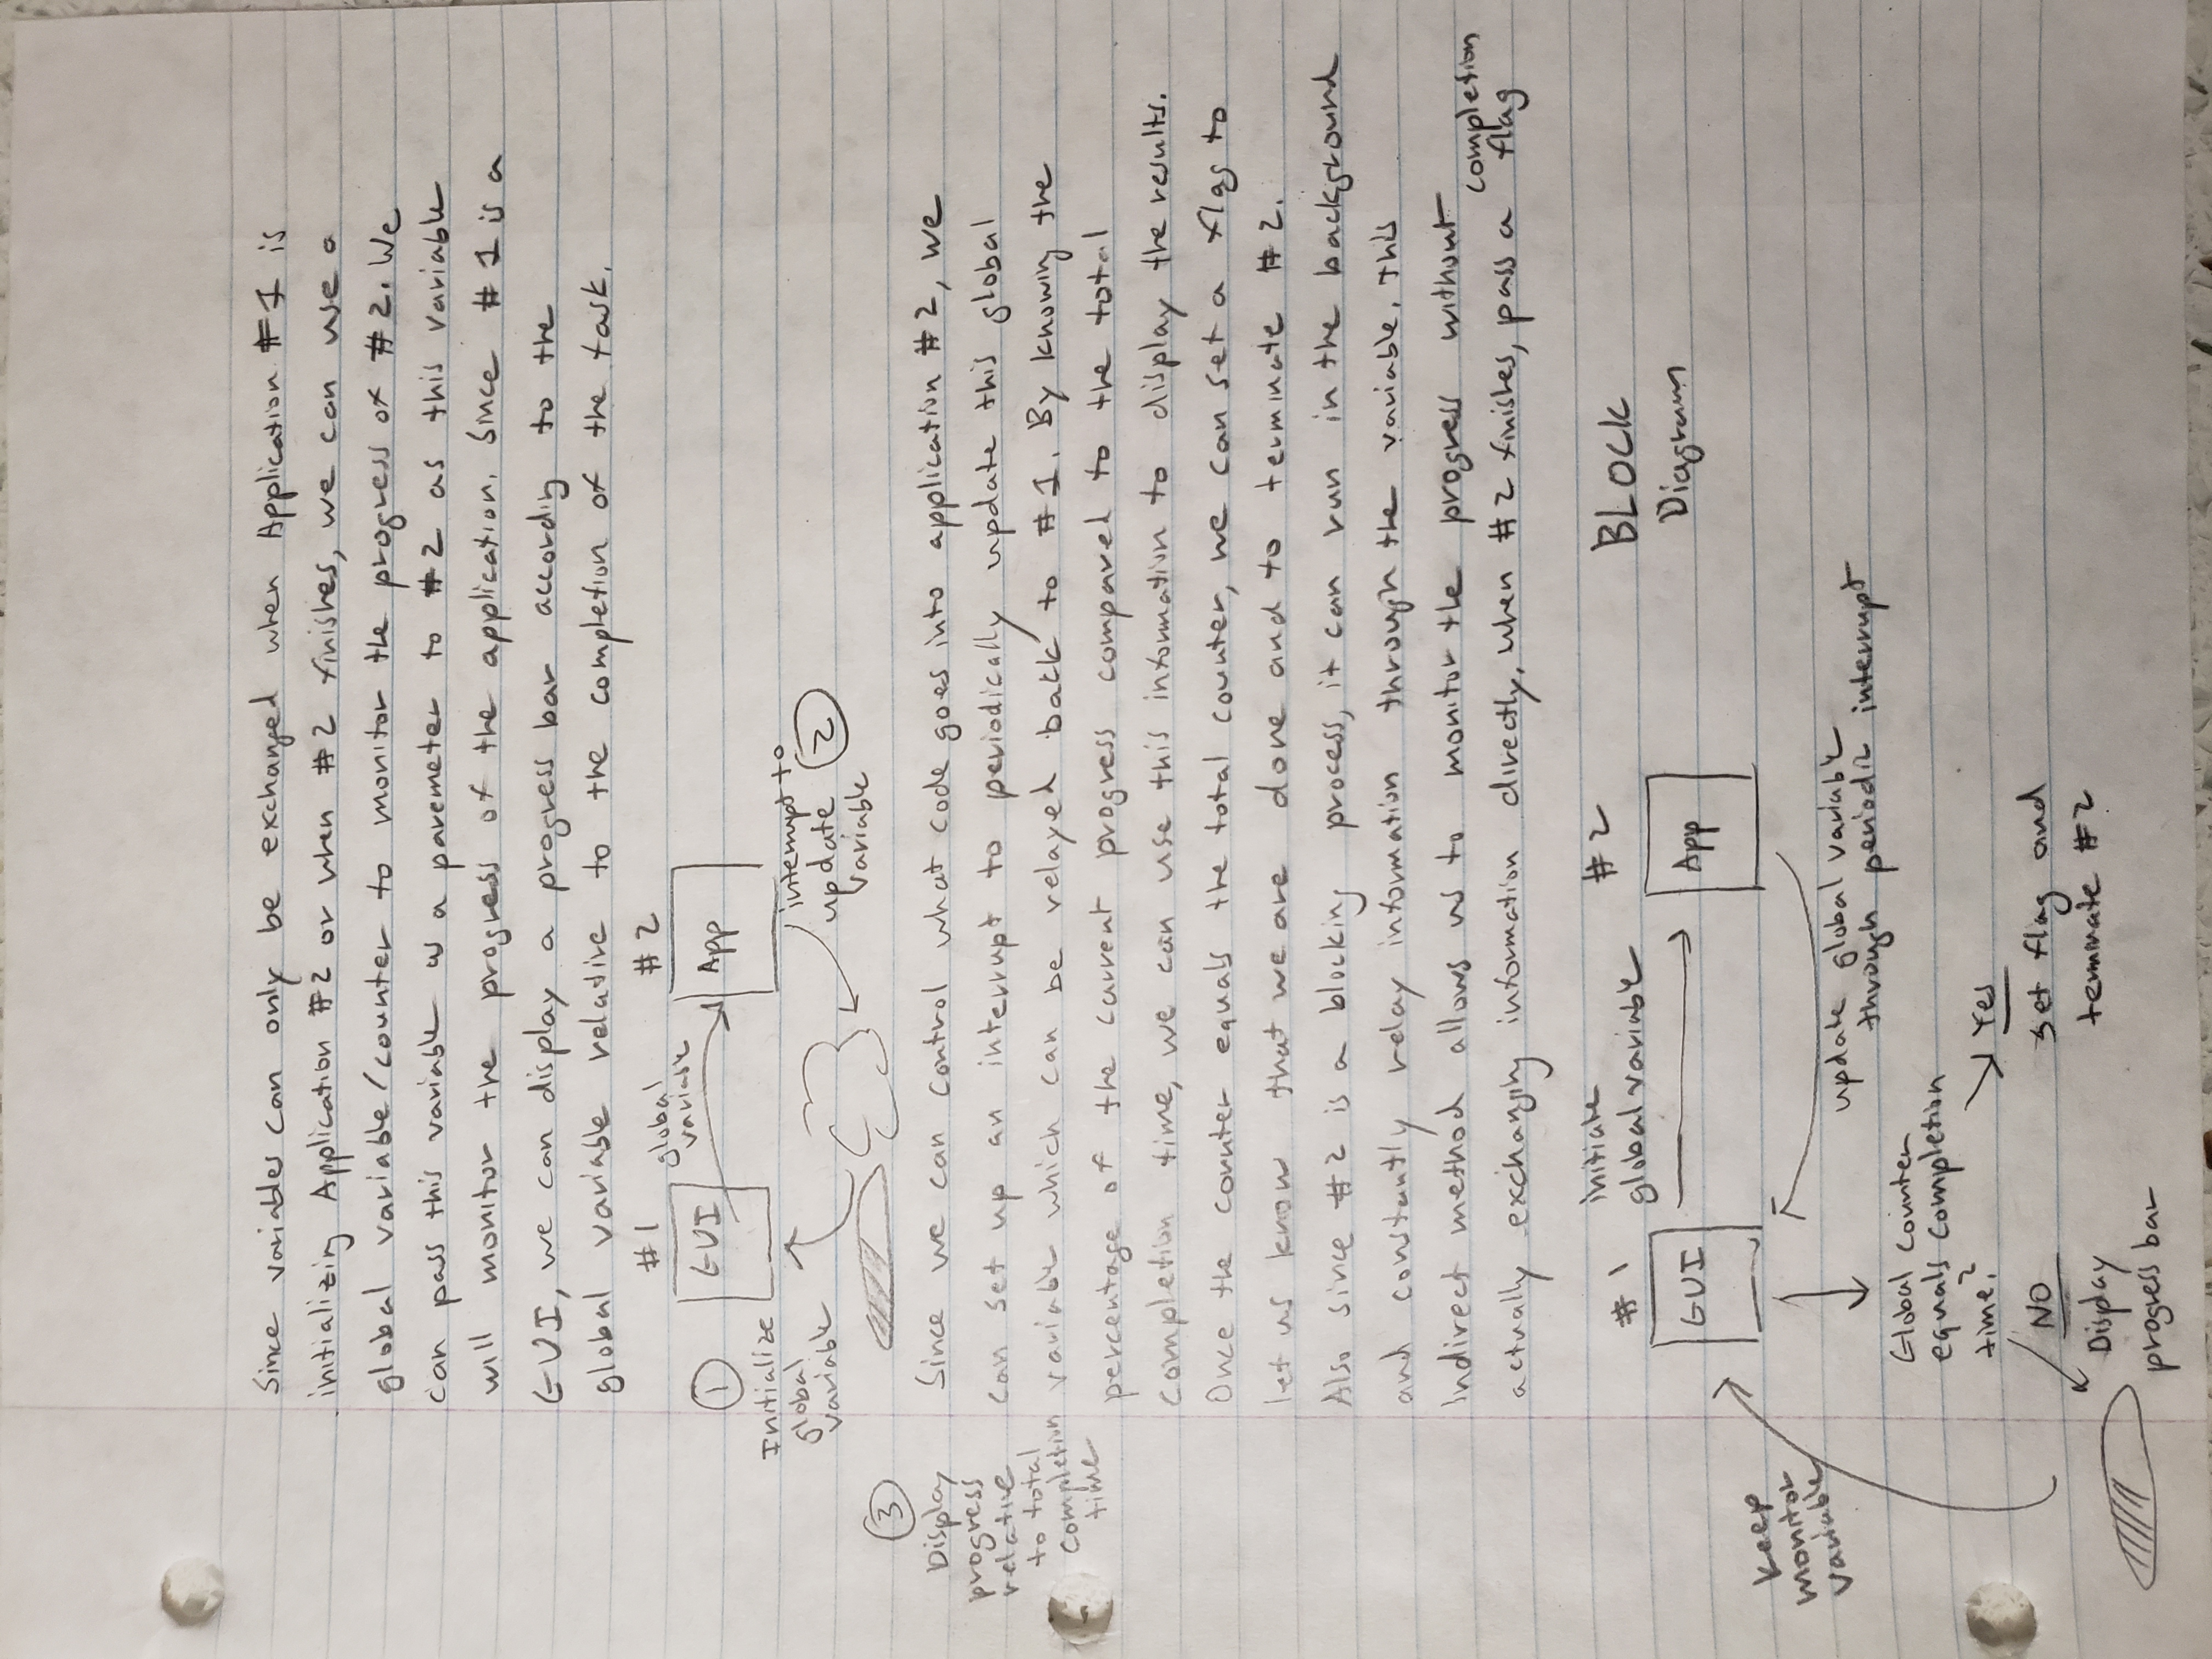 Since variables can only be exchanged when Application #1 is
initializing Application #2 or when #2 finishes, we can use a
global variable/counter to monitor the progress of #2. We
can pass this variable as a paremeter to #2 as this variable
will monitor the progress of the application. Since #1 is a
GUI, we can display a progress bar according to the
global variable relative to the completion of the task.
#1
global
variable
#2
1
GUI
App
Initialize
global
variable
interrupt to
update
variable
2
3
Display
progress
relative
to total
completion
time
Since we can control what code goes into application #2, we
can set up an interrupt to periodically update this global
variable which can be relayed back to #1. By knowing the
percentage of the current progress compared to the total
completion time, we can use this information to display the results.
Once the counter equals the total counter, we can set a flag to
let us know that we are done and to terminate #2.
Also since #2 is a blocking process, it can run in the background
and constantly relay information through the variable. This
Indirect method allows us to monitor the progress without
actually exchanging information directly. when #2 finishes, pass a completion flag
#1
initiate
global variable
#2
BLOCK
Diagram
GUI
App
Keep
monitor
variable
update global variable
through periodic interrupt
Global counter
equals completion
time?
Yes
set flag and
terminate #2
NO
Display
progress bar